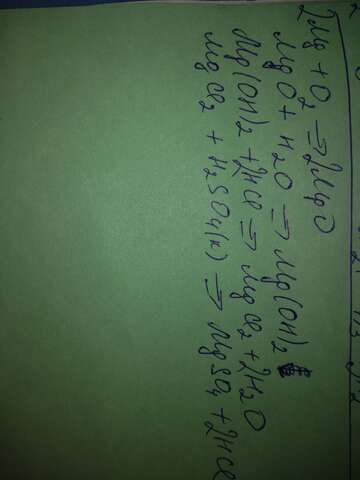 2Mg + O2 => 2MgO
MgO + H2O => Mg(OH)2
Mg(OH)2 + 2HCl => MgCl2 + 2H2O
MgCl2 + H2SO4(к) => MgSO4 + 2HCl